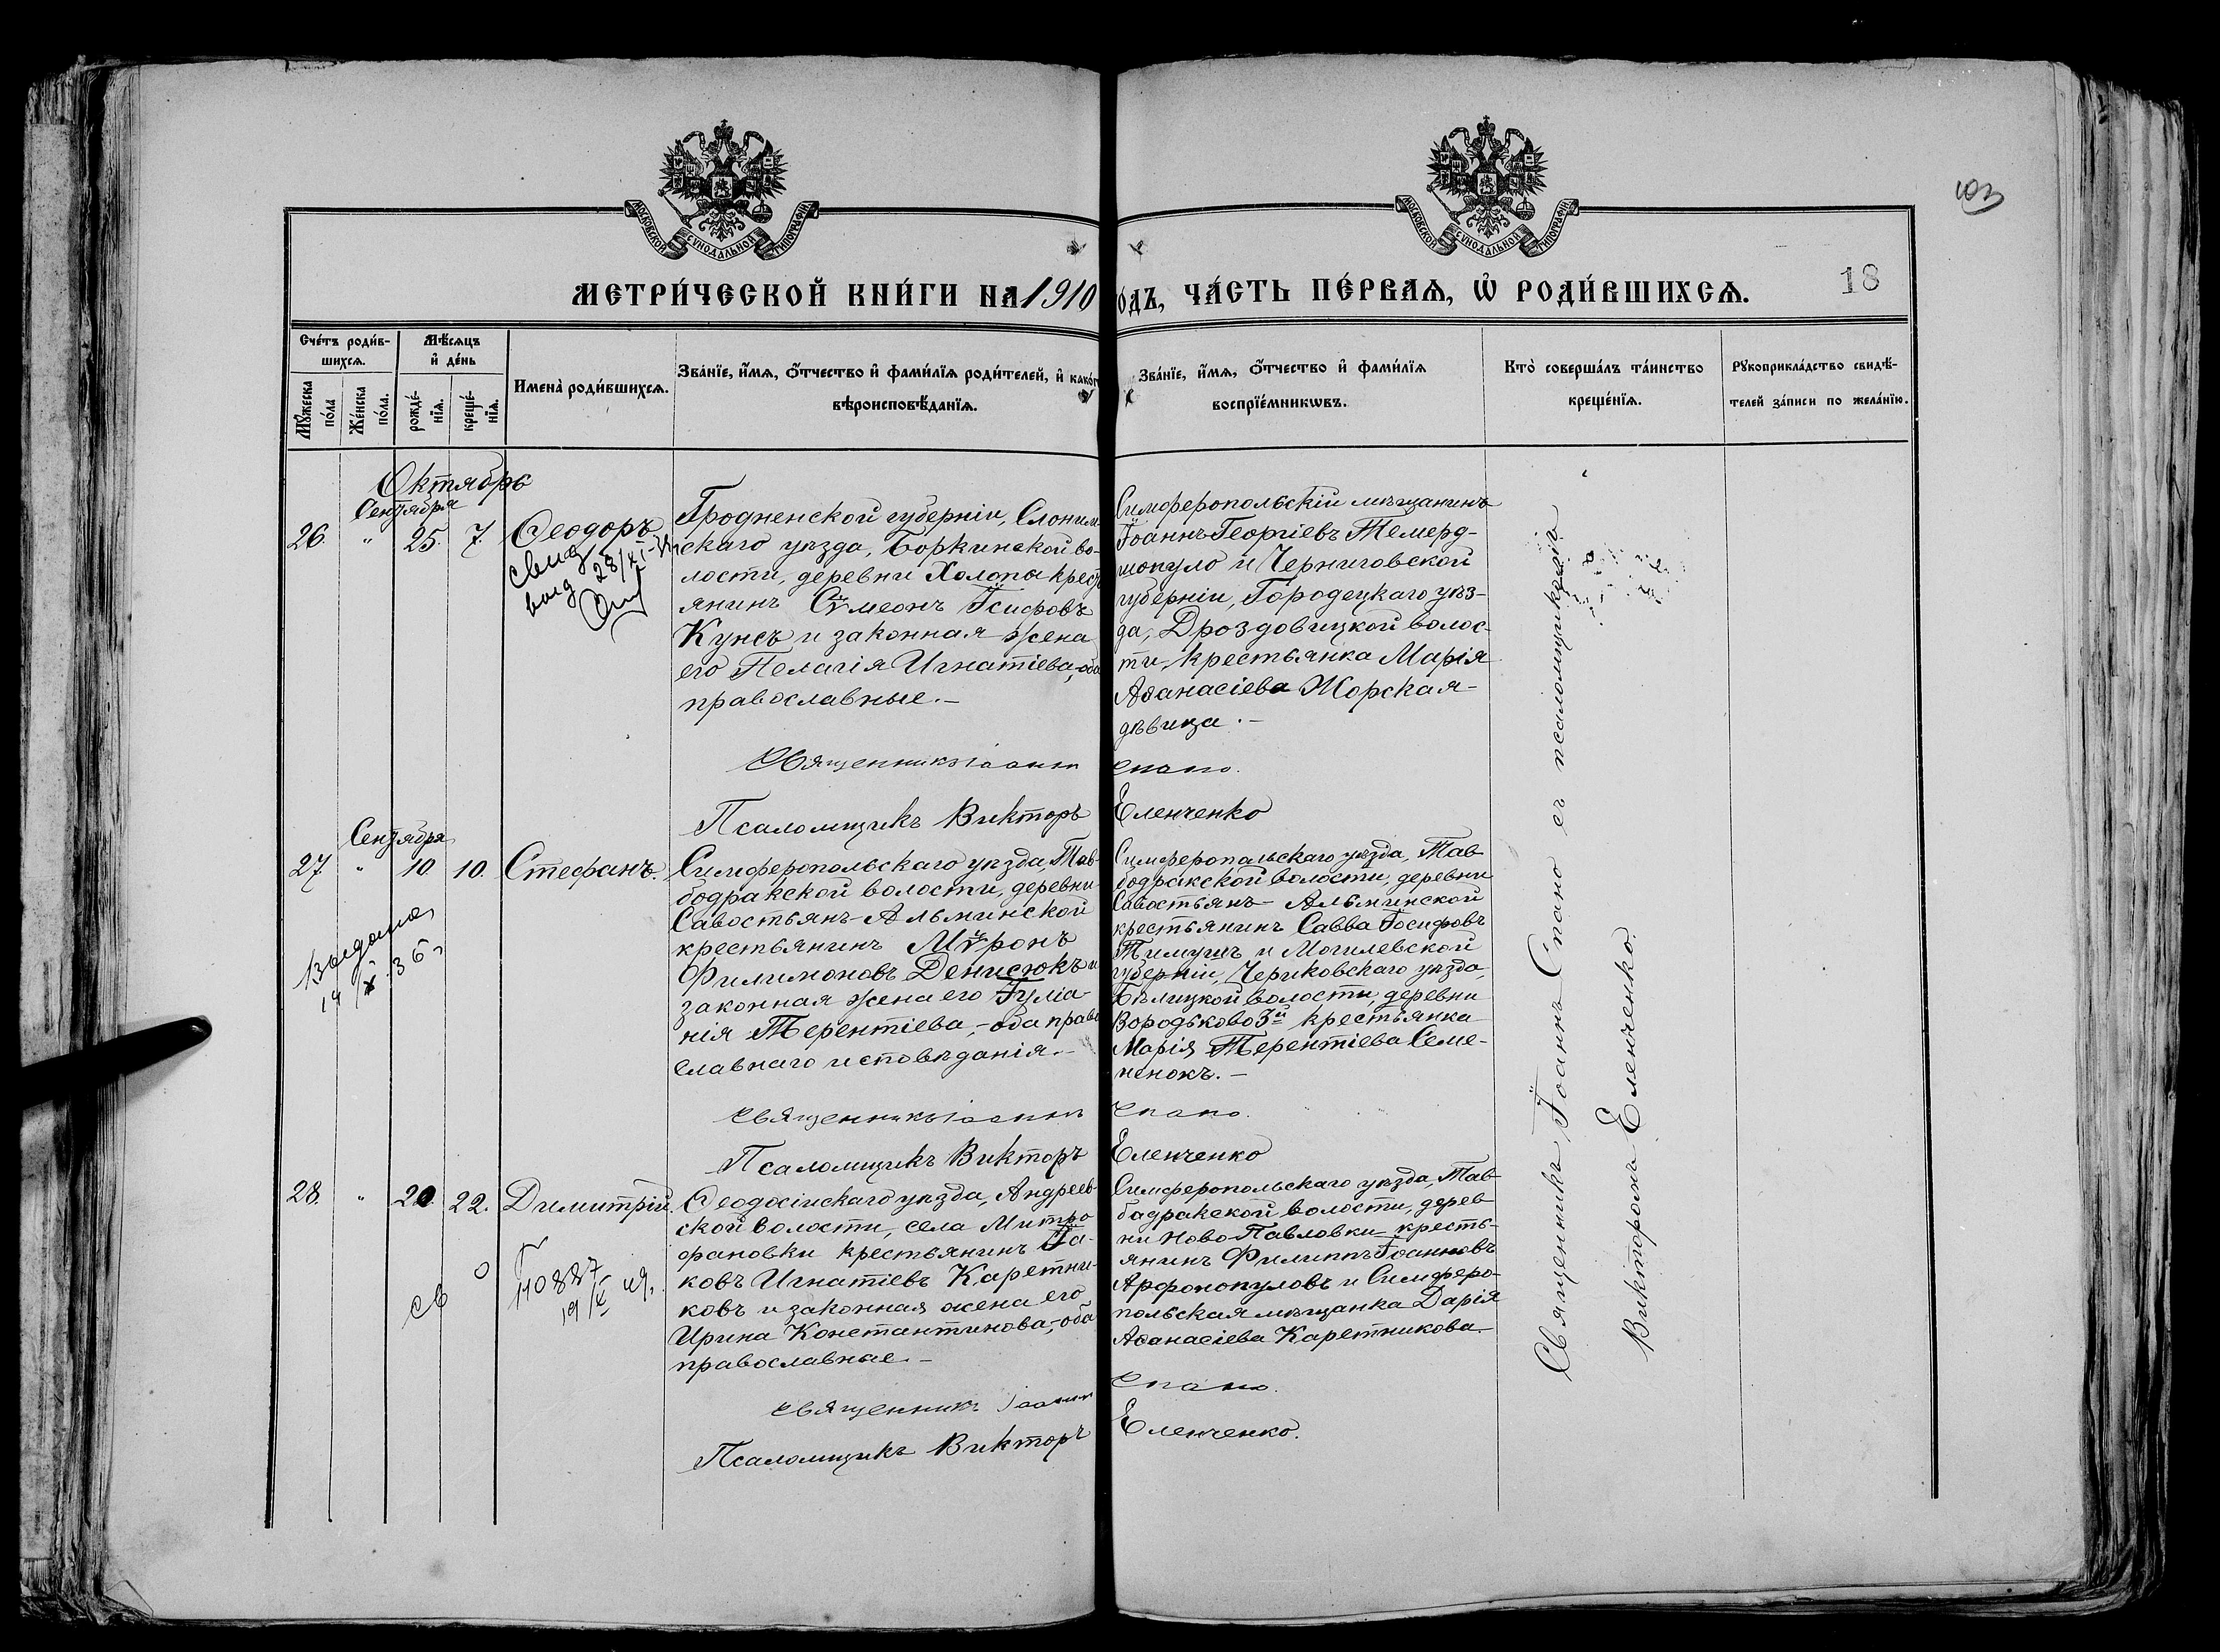 МОСКОВСКОЙ СѴНОДАЛЬНОЙ ТИПОГРАФІИ
МОСКОВСКОЙ СѴНОДАЛЬНОЙ ТИПОГРАФІИ
103
МЕТРИ́ЧЕСКОЙ КНИ́ГИ НА 1910 ОДЪ, ЧА́СТЬ ПЕ́РВАѦ, Ѡ҆ РОДИ́ВШИХСѦ.
18
Сче́тъ роди́в-
шихсѧ.
Мꙋжеска
по́ла
Же́нска
по́ла.
Мѣ́сѧцъ
и҆ де́нь
рожде́-
нїѧ.
креще́-
нїѧ.
Имена̀ роди́вшихсѧ.
Зва́нїе, и҆́мѧ, ѻ҆́тчество и҆ фами́лїѧ роди́телей, и҆ како́г
вѣроисповѣ́данїѧ.
Зва́нїе, и҆́мѧ, ѻ҆́тчество и҆ фами́лїѧ
воспрїе́мникѡвъ.
Кто̀ соверша́лъ та́инство
креще́нїѧ.
Рꙋкоприкла́дство свидѣ́-
телей за́писи по жела́нїю.
Октябрь
Сентября
26. " 25. 7. Ѳеодоръ
свид
выд 28/XI
Гродненской губерніи, Слоним-
скаго уѣзда, Боркинской во-
лости, деревни Холопы крест
янинъ Сѵмеонъ Іосифовъ
Кунсъ и законная жена
его Пелагія Игнатіева,-оба
православные.-
Симферопольскій мѣщанинъ
Іоаннъ Георгіевъ Темерд-
шопуло и Черниговской
губерніи, Городецкаго уѣз-
да, Дроздовицкой волос-
ти, крестьянка Марія
Аѳанасіева Жорская-
дѣвица.-
Священникъ Іоаннъ Спано.
Псаломщикъ Викторъ Еленченко
Сентября
27 " 10 10. Стефанъ.
Выдана
19/X 36 г
Симферопольскаго уѣзда, Тав-
бодракской волости, деревни
Савостьянъ-Альминской
крестьянинъ Мѵронъ
Филимоновъ Денисюкъ и
законная жена его Іуліа-
нія Терентіева,-оба право
славнаго исповѣданія.-
Симферопольскаго уѣзда, Тав
бодракской волости, деревни
Савостьянъ-Альминской
крестьянинъ Савва Іосифовъ
Тимушъ и Могилевской
губерніи, Чериковскаго уѣзда,
Бѣлицкой волости, деревни
Вородьково 3й крестьянка
Марія Терентіева Семе-
ненокъ.-
Священникъ Іоаннъ Спано.
Псаломщикъ Викторъ Еленченко
28. " 20 22. Димитрій.
св О 110887
19/X
Ѳеодосійскаго уѣзда, Андреев-
ской волости, села Митро
фановки крестьянинъ Іа-
ковъ Игнатіевъ Каретни-
ковъ и законная жена его
Ирина Константинова,-оба
православные.-
Симферопольскаго уѣзда, Тав-
бадракской волости, дерев
ни Ново-Павловки кресть-
янинъ Филиппъ Іоанновъ
Арфонопуловъ и Симферо-
польская мѣщанка Дарія
Аѳанасіева Каретникова-
Священникъ Іоаннъ Спано.
Псаломщикъ Викторъ Еленченко.
Священникъ Іоаннъ Спано съ псаломщикомъ
Викторомъ Еленченко.